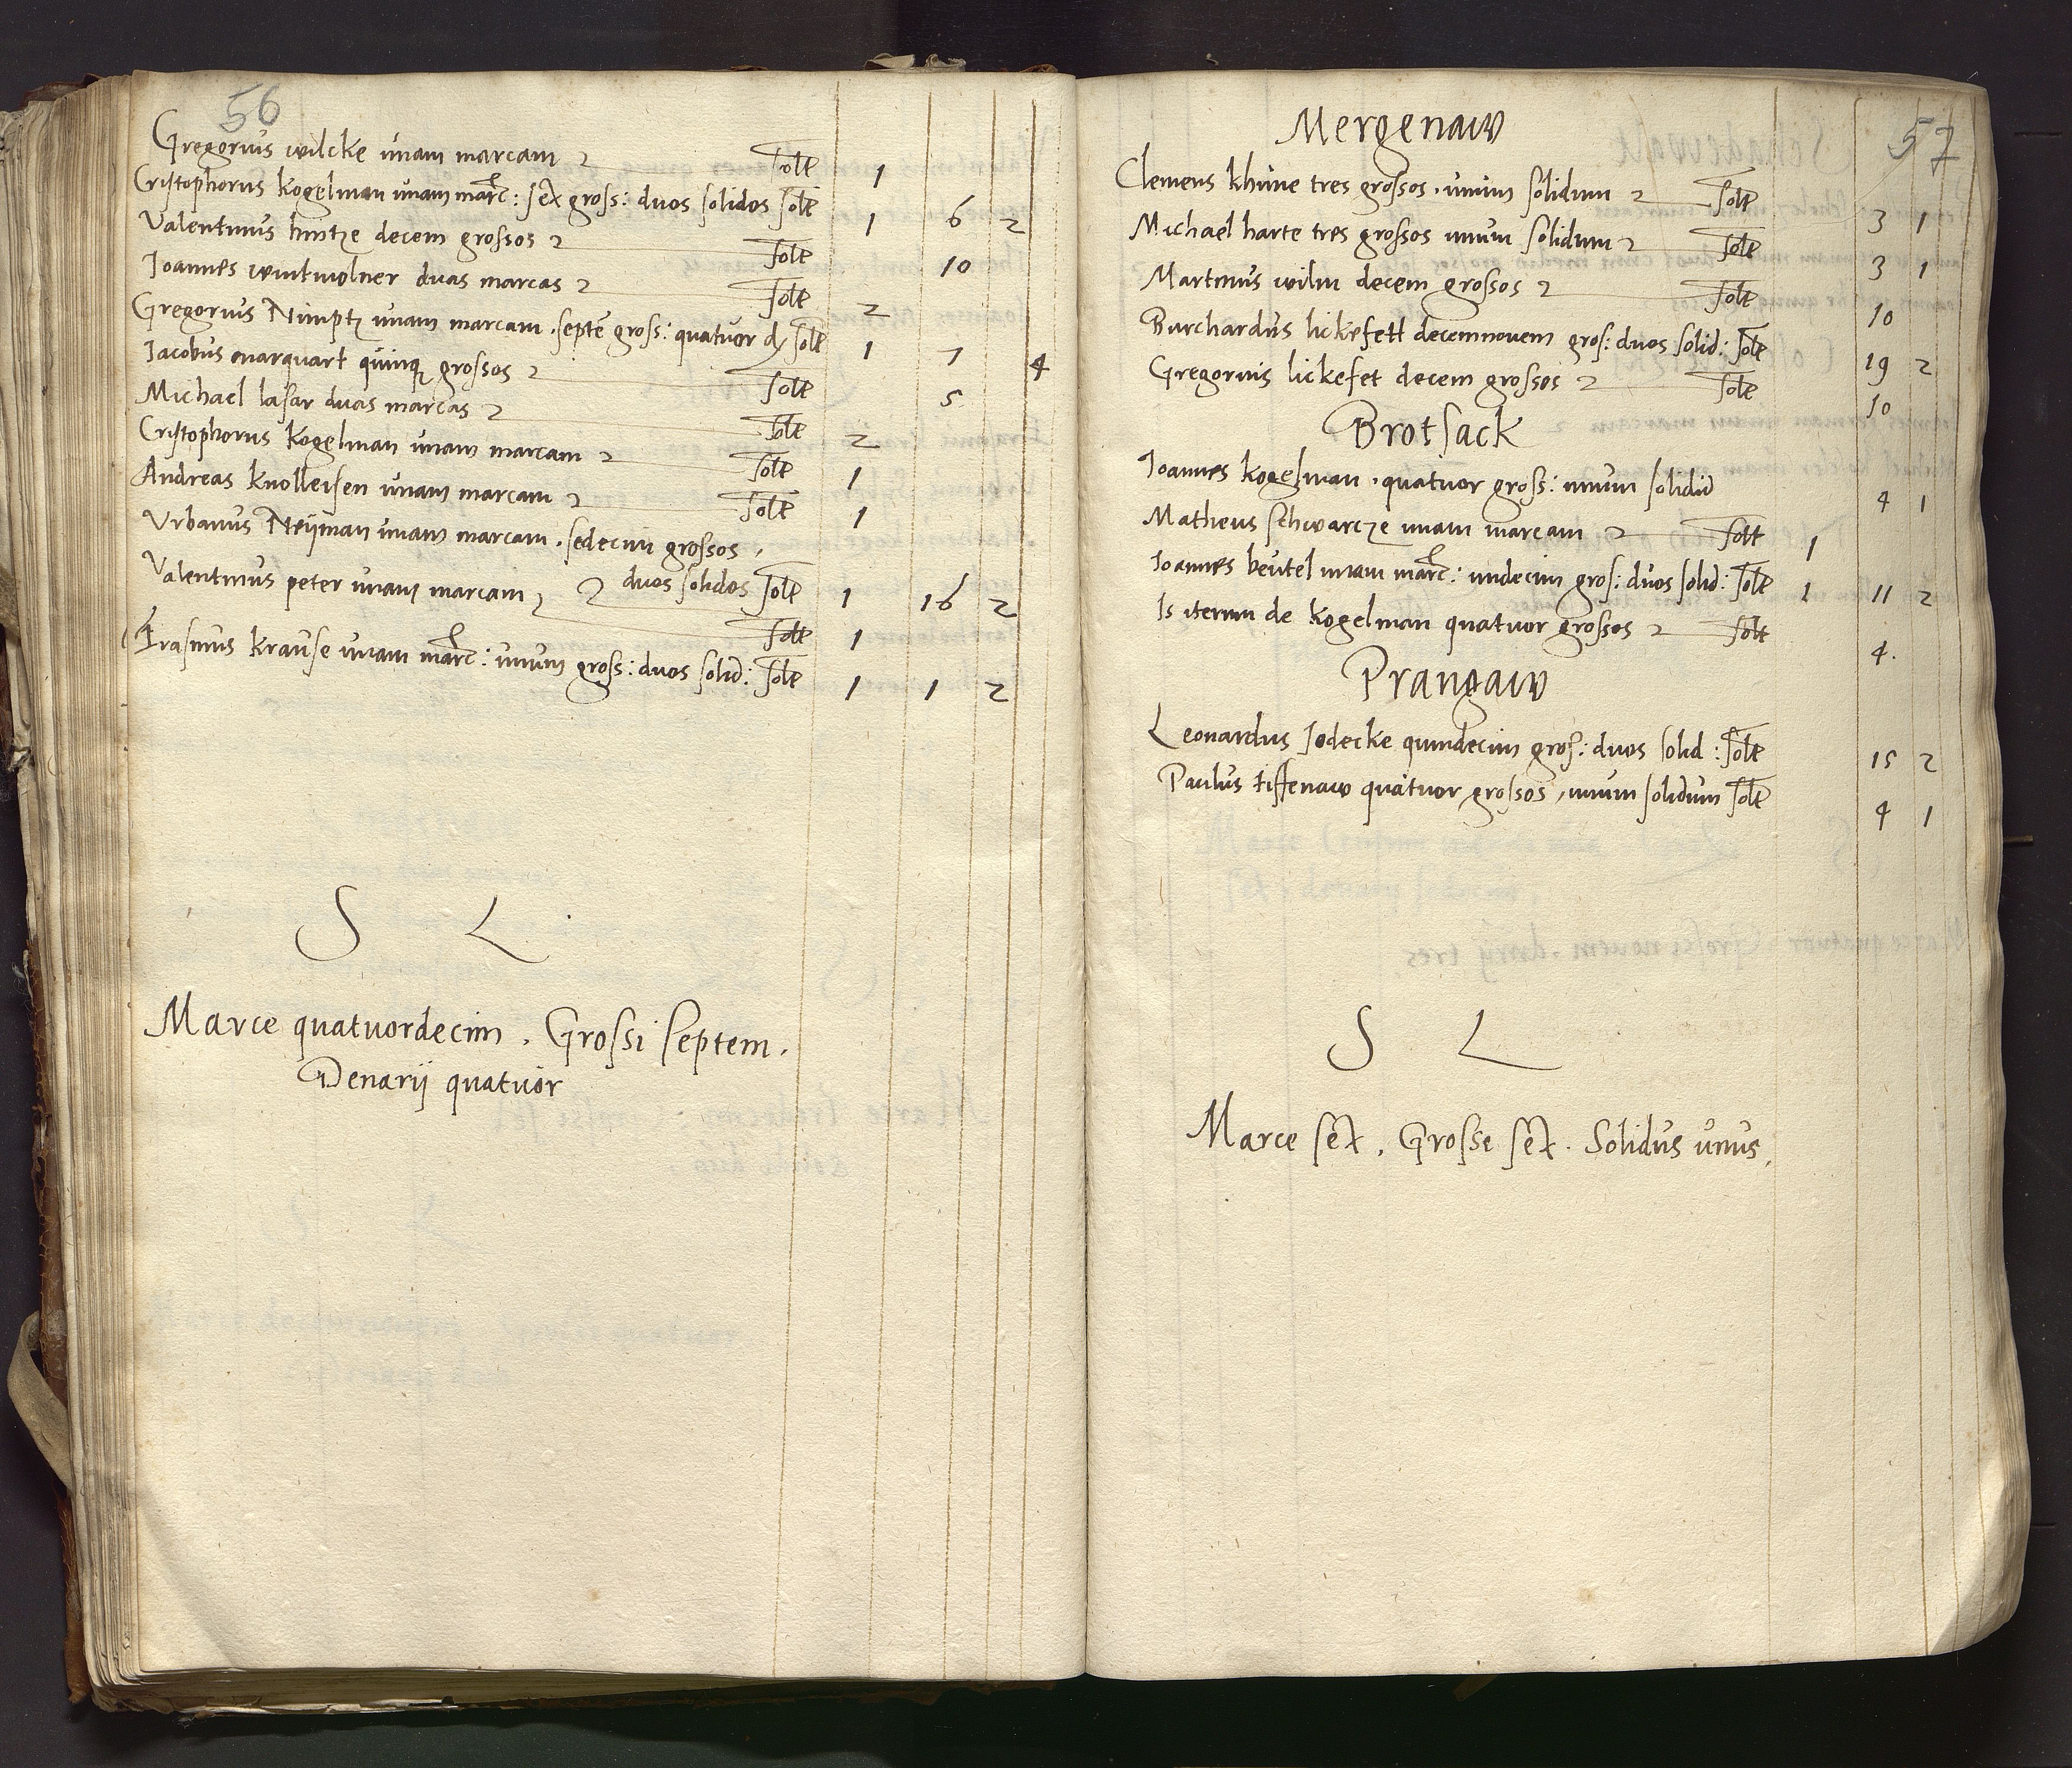 56
Gregorius wilcke unam marcam solt 1
Cristophorus Kogelman unam marc: sex gross: duos solidos solt 1 6 2
Valentinus hintze decem grossos solt 10
Joannes wintmolner duas marcas solt 2
Gregorius Nimptz unam marcam . septe gross: quatuor d solt 1 7 4
Jacobus marquart quinq grossos solt 5
Michael lasar duas marcas solt 2
Cristophorus Kogelman unam marcam solt 1
Andreas Knolleisen unam marcam solt 1
Urbanus Neijman unam marcam . sedecim grossos,
duos solidos solt 1 16 2
Valentinus peter unam marcam solt 1
Erasmus Krause unam marc: unum gross: duos solid: solt 1 1 2
S L
Marce quatuordecim . Grossi septem .
Denarij quatuor
57
Mergenaw
Clemens khune tres grossos . unum solidum solt 3 1
Michael harte tres grossos unum solidum solt 3 1
Martinus wilm decem grossos solt 10
Burchardus lickefett decemnovem gros: duos solid: solt 19 2
Gregorius lickefet decem grossos solt 10
Brotsack
Joannes Kogelman . quatuor gross: unum solidu 4 1
Matheus schwarcze unam marcam solt 1
Joannes beutel unam marc: undecim gros: duos solid: solt 1 11 2
Is iterum de Kogelman quatuor grossos solt 4.
Prangaw
Leonardus Jodecke quindecim gros: duos solid: solt 15 2
Paulus tiffenaw quatuor grossos, unum solidum solt 4 1
S L
Marce sex . Grosse sex . Solidus unus,